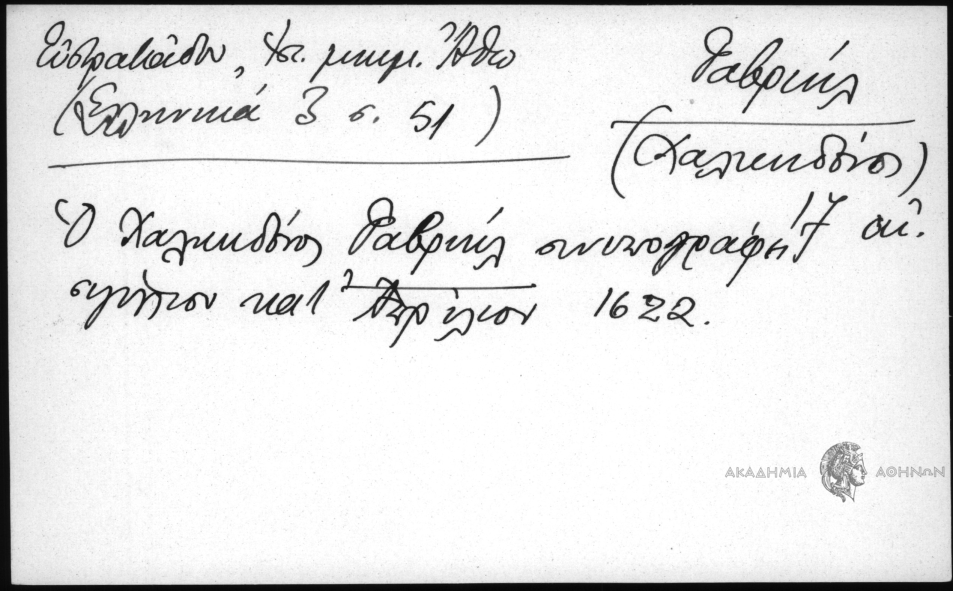 Εὐστρατιάδου, Ἱστ. μνημ. Ἄθω
(Ἑλληνικά 3 σ. 51)
Γαβριήλ
(Χαλκηδόνος)
Ὁ Χαλκηδόνος Γαβριήλ συνυπογράφει
17 αἰ.
σιγίλλιον κατ' Ἀπρίλιον 1622.
ΑΚΑΔΗΜΙΑ ΑΘΗΝΩΝ